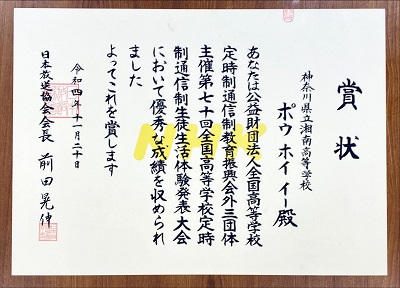 賞状
神奈川県立湘南高等学校
ポウ ホイ イー殿
あなたは公益財団法人全国高等学校
定時制通信制教育振興会外三団体
主催第七十回全国高等学校定時
制通信制生徒生活体験発表大会
において優秀な成績を収められ
ました
よってこれを賞します
令和四年十一月二十日
日本放送協会会長 前田晃伸